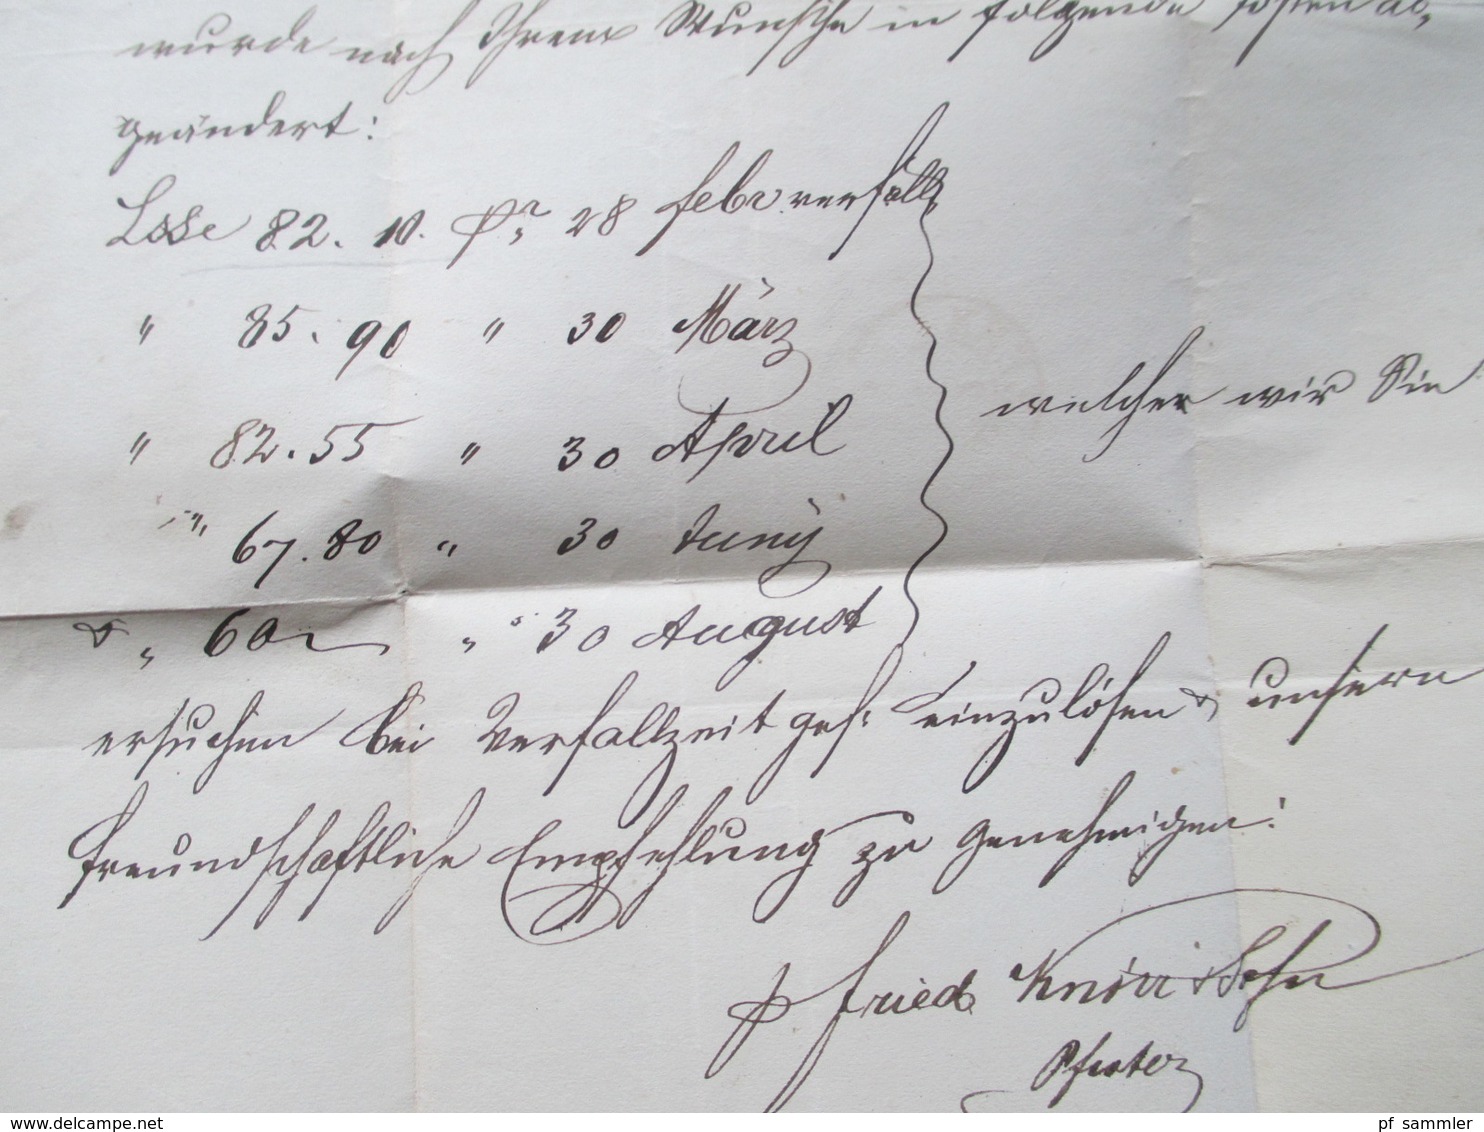 wurde nach Ihrem Wunsche in folgende Posten ab,
geändert:
82. 10. pr 28 Febr verfallt
" 85. 90 " 30 März
" 82. 55 " 30 April
" 67. 80 " 30 Juny
& " 60 " 30 August
welche wir Sie
ersuchen bei Verfallzeit gef: einzulösen & unsern
freundschaftliche Empfehlung zu genehmigen!
p Fried Knörr & Sohn
pf_sammler
www.delcampe.net